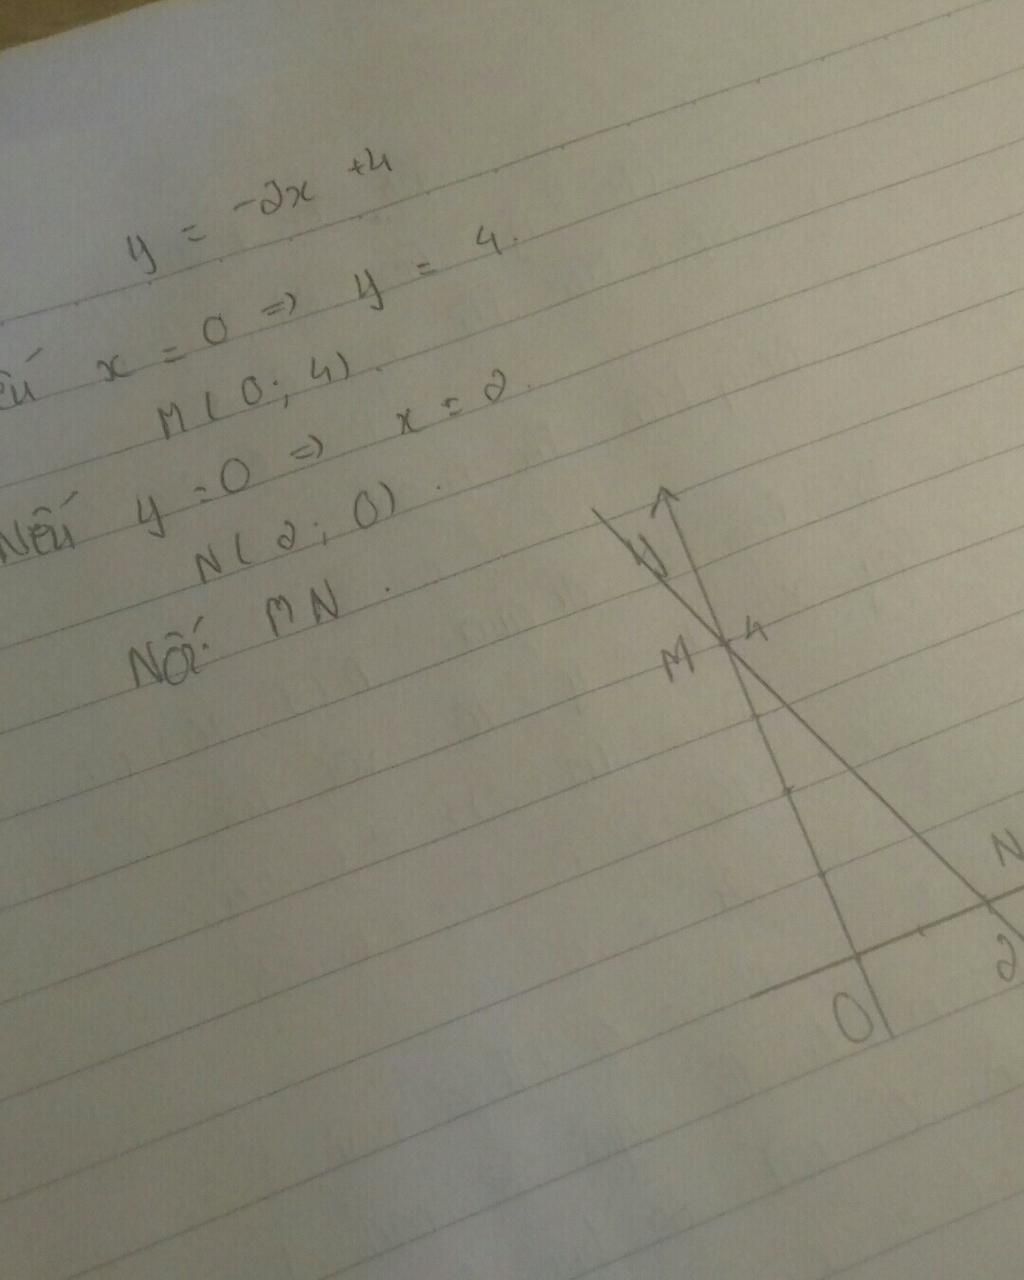 y = -2x +4
x = 0 => y = 4.
M(0; 4).
Nếu y = 0 => x = 2.
N(2; 0).
Nối MN.
y
M 4
N
2
O